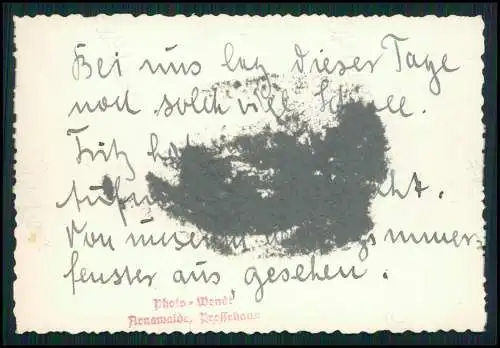 Bei uns lag dieser Tage
noch solch viel Schnee.
Fritz
von unserem
fenster aus, gesehen.
Photo-Wendt
Arnswalde, Pressehaus